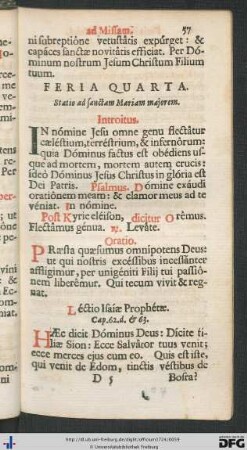 ad Missam. 57
ni subreptióne vetustátis expúrget: &
capáces sanctæ novitátis efficiat. Per Dó-
minum nostrum Jesum Christum Filium
tuum.
FERIA QUARTA.
Statio ad sanctam Mariam majorem.
Introitus.
IN nómine Jesu omne genu flectátur
cæléstium, terréstrium, & infernórum:
quia Dóminus factus est obédiens us-
que ad mortem, mortem autem crucis:
ideò Dóminus Jesus Christus in glória est
Dei Patris. Psalmus. Dómine exáudi
oratiónem meam: & clamor meus ad te
véniat. In nómine.
Post Kyrie eléison, dicitur Orémus.
Flectámus génua. ℟. Leváte.
Oratio.
PRæsta quæsumus omnipotens Deus:
ut qui nostris excéssibus incessánter
affligimur, per unigéniti Filij tui passió-
nem liberémur. Qui tecum vivit & reg-
nat.
Léctio Isaiæ Prophétæ.
Cap. 62. d. & 63.
HÆc dicit Dóminus Deus: Dícite fí-
liæ Sion: Ecce Salvátor tuus venit;
ecce merces ejus cum eo. Quis est iste,
qui venit de Edom, tinctis véstibus de
D 5 Bosra?
DFG